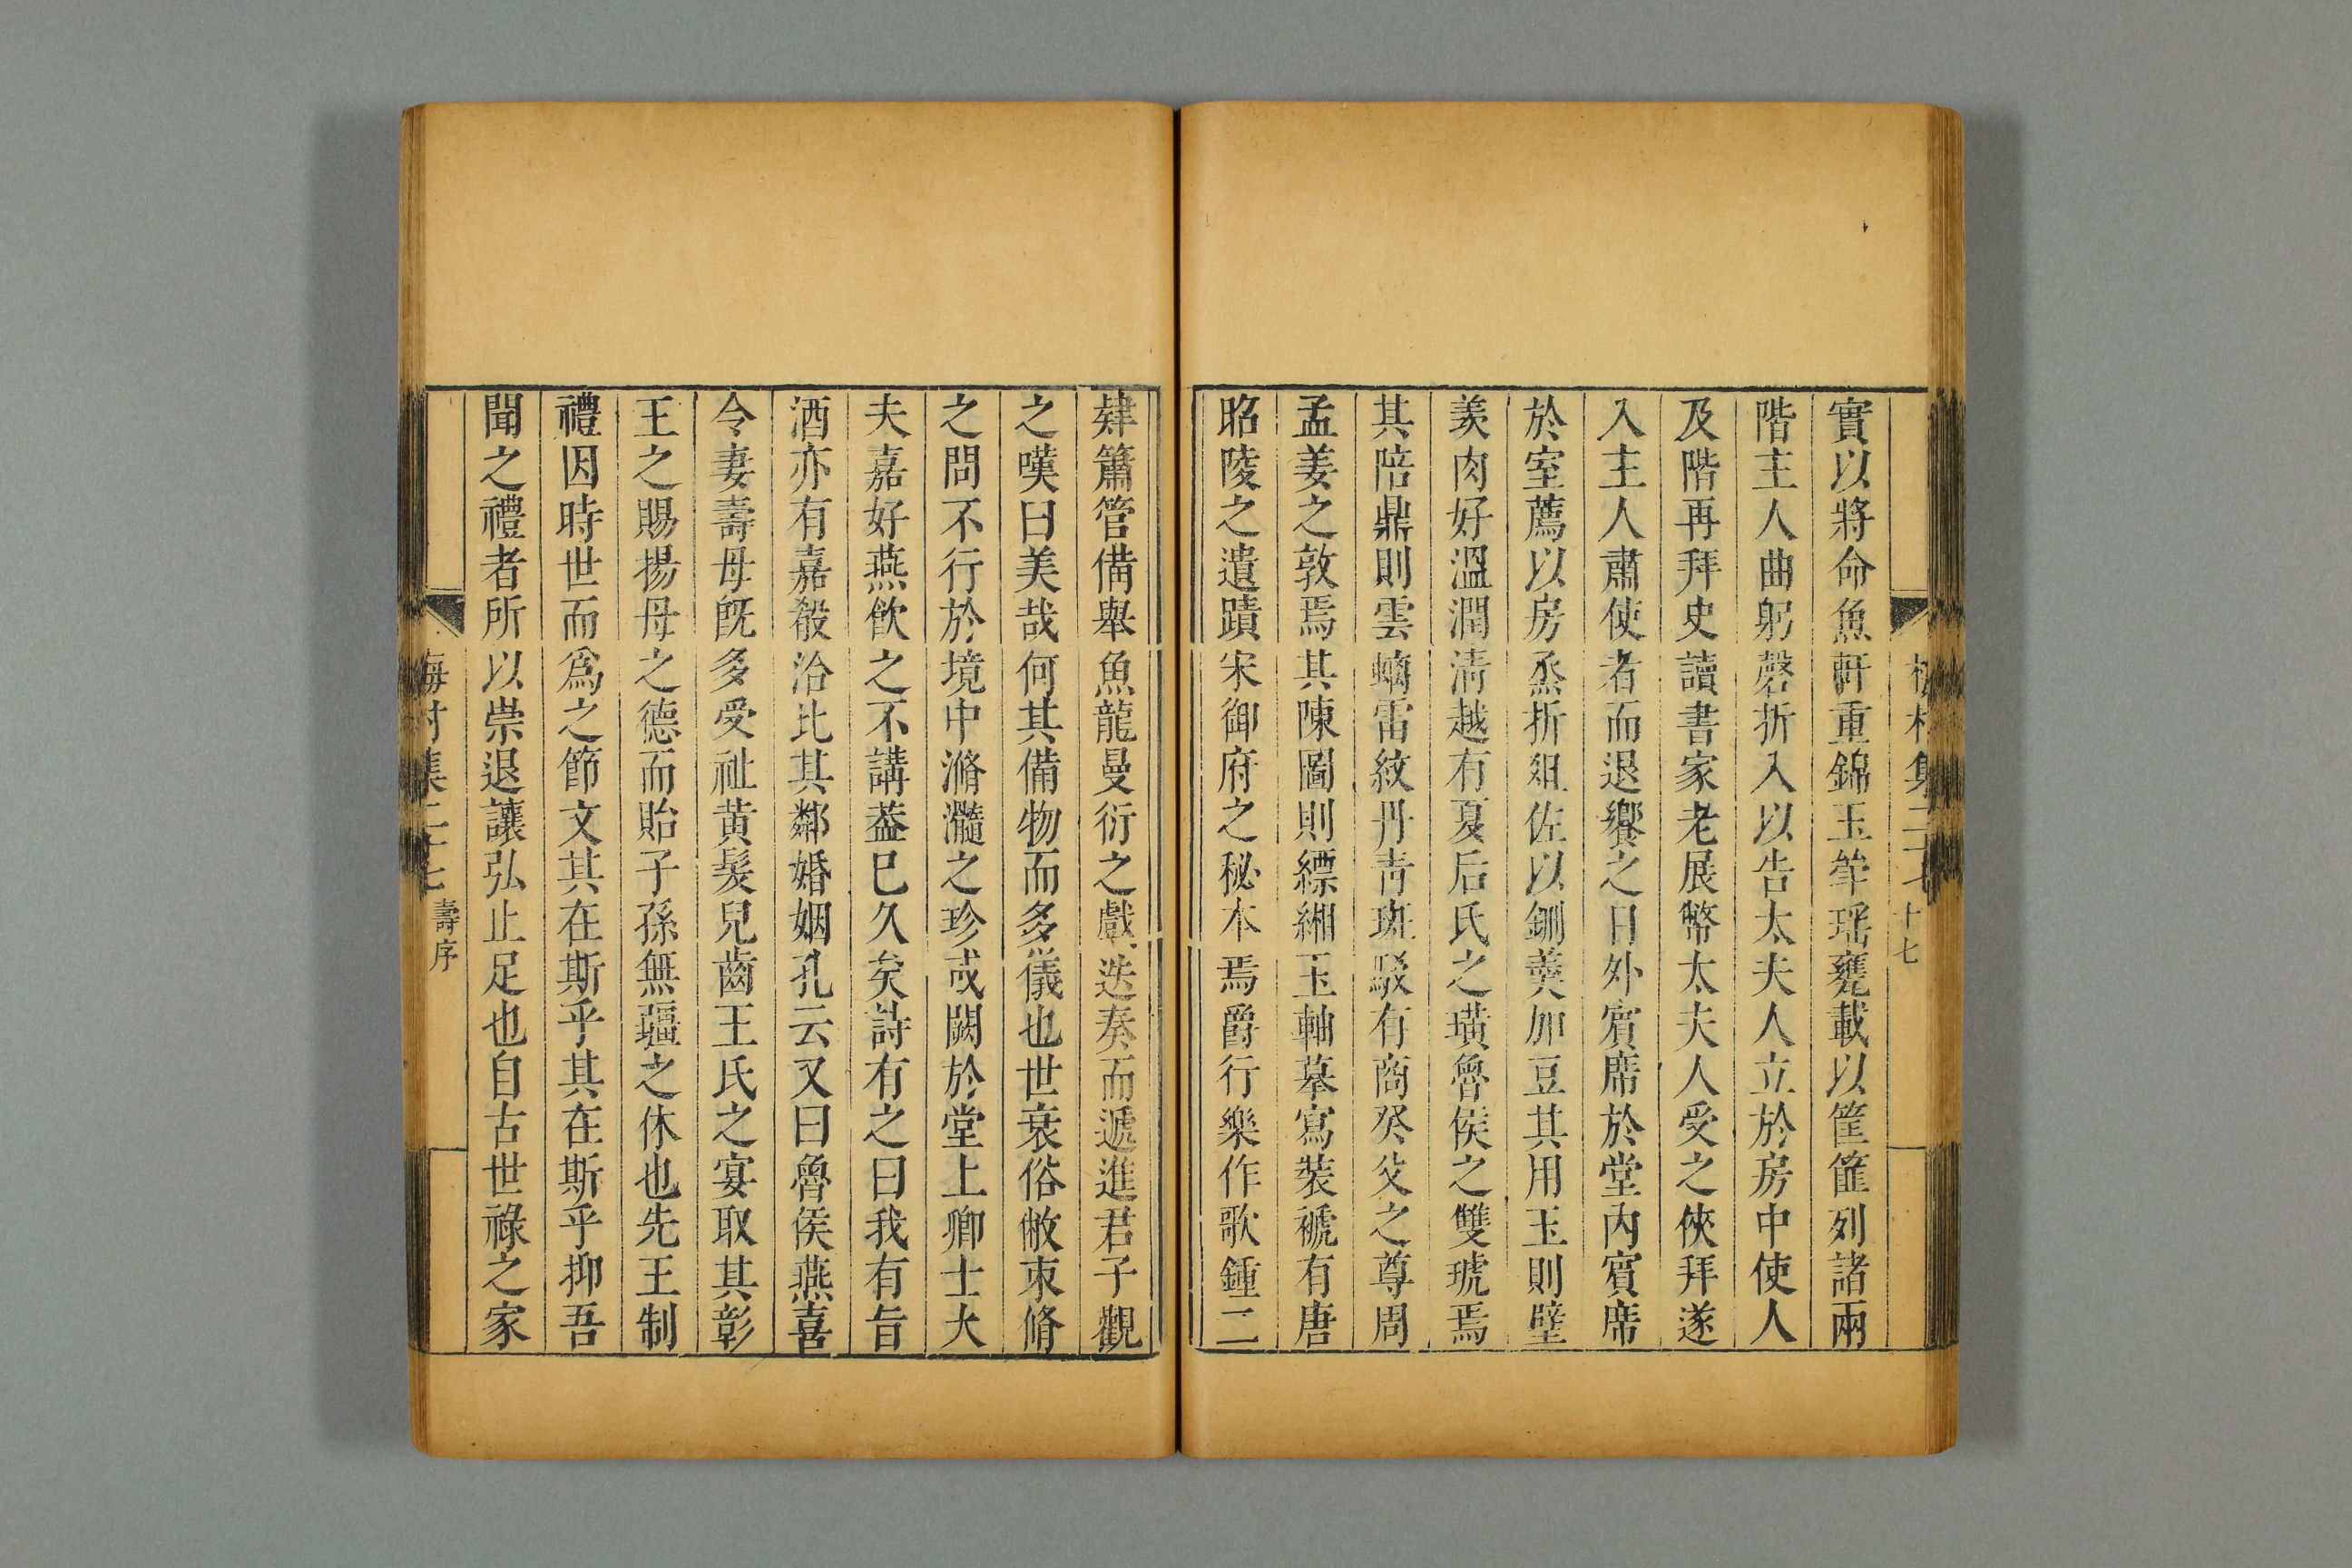 實以將命魚軒重錦玉斝瑶甕載以筐篚列諸兩
階主人曲躬磬折入以告太夫人立於房中使人
及階再拜史讀書家老展幣太夫人受之俠拜遂
入主人肅使者而退饗之日外賓席於堂内賓席
於室薦以房烝折俎佐以鉶羹加豆其用玉則璧
羨肉好溫潤清越有夏后氏之璜魯侯之雙琥焉
其陪鼎則雲螭雷紋丹青斑駁有商癸父之尊周
孟姜之敦焉其陳圖則縹緗玉軸摹寫裝褫有唐
昭陵之遺蹟宋御府之秘本焉爵行樂作歌鍾二
肄簫管備舉魚龍曼衍之戲迭奏而遞進君子觀
之嘆曰美哉何其備物而多儀也世衰俗敝束脩
之問不行於境中滫瀡之珍或闕於堂上卿士大
夫嘉好燕飲之不講葢已久矣詩有之曰我有旨
酒亦有嘉殽洽比其鄰婚姻孔云又曰魯侯燕喜
令妻壽母旣多受祉黄髮兒齒王氏之宴取其彰
王之賜揚母之德而貽子孫無疆之休也先王制
禮因時世而爲之節文其在斯乎其在斯乎抑吾
聞之禮者所以崇退讓弘止足也自古世祿之家
梅村集二十七
壽序
十七